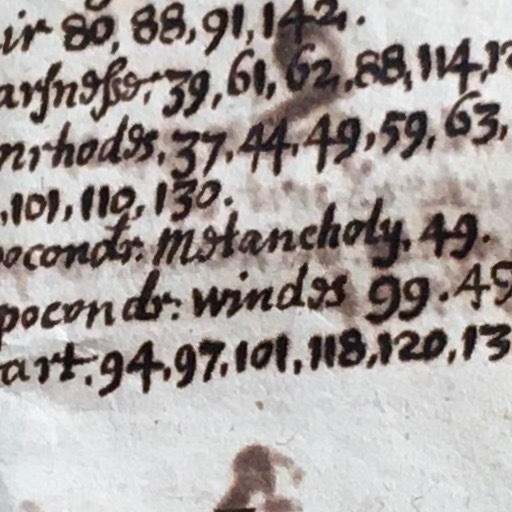 ir 80, 88, 91, 142.
arsnesse, 39, 61, 62, 88, 114, 12
nrhodes, 37, 44, 49, 59, 63,
, 101, 110, 130.
pocondr: Melancholy, 49.
pocondr: windes 99. 49
art, 94, 97, 101, 118, 120, 13